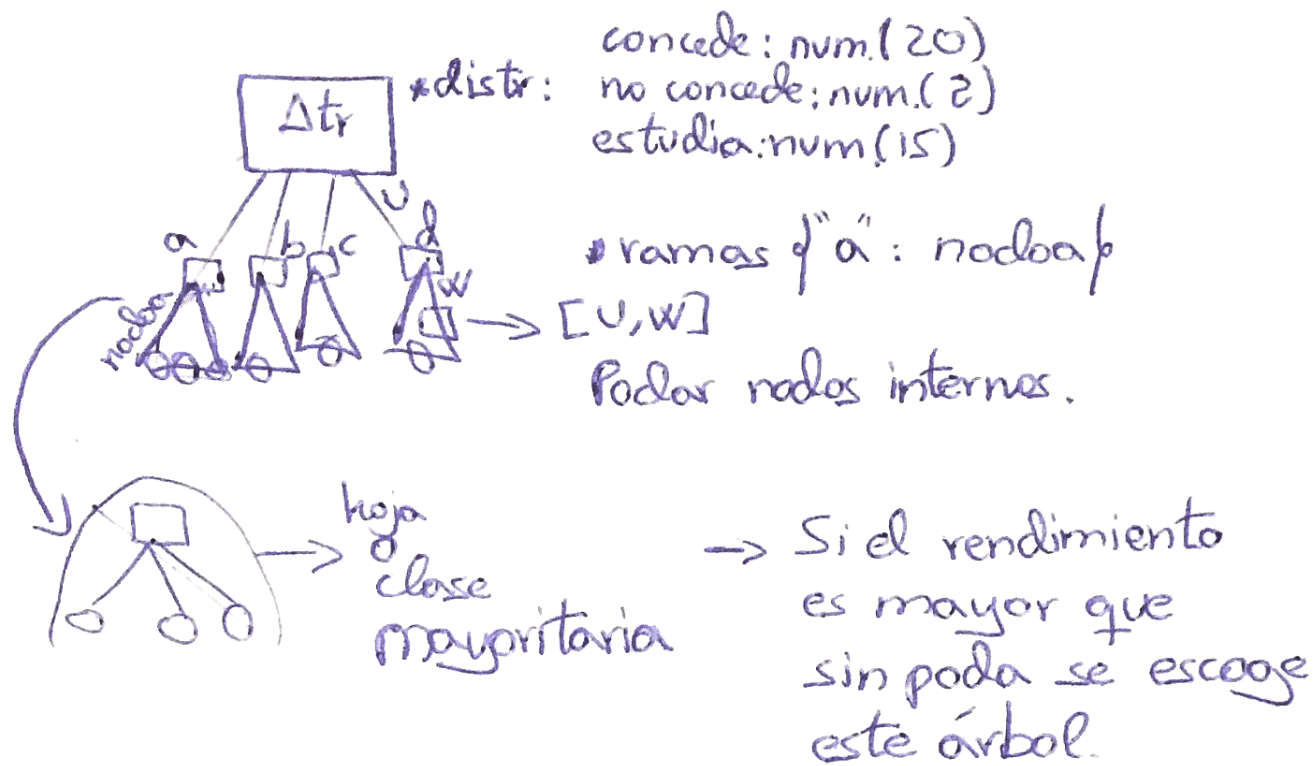 concede: num.(20)
*distr: no concede: num.(2)
estudia: num(15)
Δtr
U
a
b
c
d
W
nodoa
*ramas {"a": nodoa}
[U,W]
Podar nodos internos.
hoja
o
clase
mayoritaria
-> Si el rendimiento
es mayor que
sin poda se escoge
este árbol.